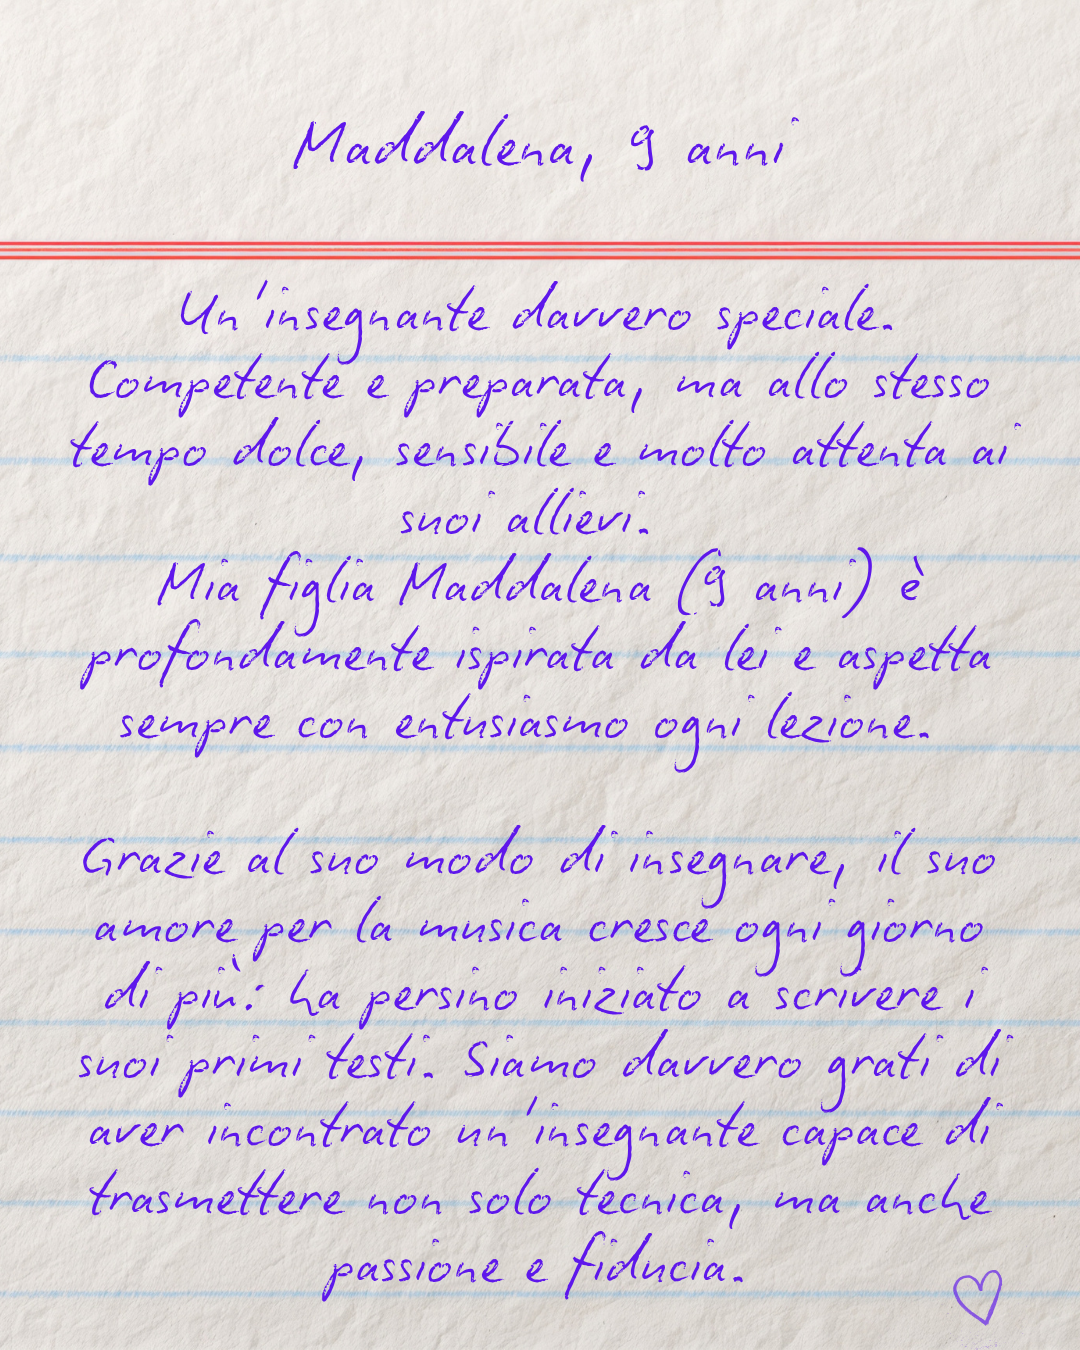 Maddalena, 9 anni
Un'insegnante davvero speciale.
Competente e preparata, ma allo stesso
tempo dolce, sensibile e molto attenta ai
suoi allievi.
Mia figlia Maddalena (9 anni) è
profondamente ispirata da lei e aspetta
sempre con entusiasmo ogni lezione.
Grazie al suo modo di insegnare, il suo
amore per la musica cresce ogni giorno
di più: ha persino iniziato a scrivere i
suoi primi testi. Siamo davvero grati di
aver incontrato un'insegnante capace di
trasmettere non solo tecnica, ma anche
passione e fiducia.